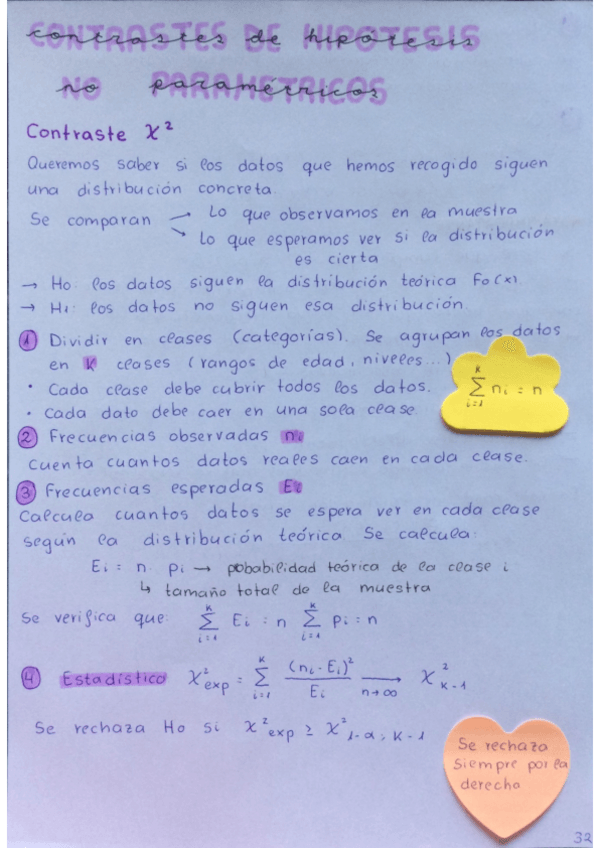 CONTRASTES DE HIPÓTESIS
contrastes de hipótesis
NO PARAMÉTRICOS
no paramétricos
Contraste χ²
Queremos saber si los datos que hemos recogido siguen
una distribución concreta.
Se comparan → Lo que observamos en la muestra
→ Lo que esperamos ver si la distribución
es cierta
→ H₀: los datos siguen la distribución teórica F₀(x)
→ H₁: los datos no siguen esa distribución.
① Dividir en clases (categorías). Se agrupan los datos
en K clases (rangos de edad, niveles...)
• Cada clase debe cubrir todos los datos.
• Cada dato debe caer en una sola clase.
∑ᵢ₌₁ᴷ nᵢ = n
② Frecuencias observadas nᵢ
Cuenta cuantos datos reales caen en cada clase.
③ Frecuencias esperadas Eᵢ
Calcula cuantos datos se espera ver en cada clase
según la distribución teórica. Se calcula:
Eᵢ = n · pᵢ → pobabilidad teórica de la clase i
↳ tamaño total de la muestra
Se verifica que: ∑ᵢ₌₁ᴷ Eᵢ = n ∑ᵢ₌₁ᴷ pᵢ = n
④ Estadístico χ²exp = ∑ᵢ₌₁ᴷ (nᵢ - Eᵢ)² / Eᵢ → n→∞ χ²K-1
Se rechaza H₀ si χ²exp ≥ χ²1-α; K-1
Se rechaza
siempre por la
derecha
32